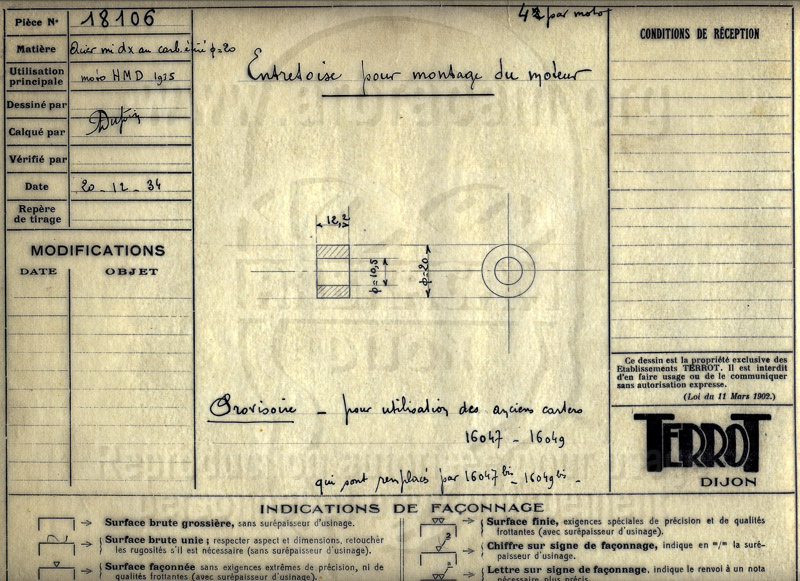 Pièce N° 18106
4 par moto
Matière Acier mi dx au carb. étiré φ=20
Utilisation principale moto HMD 1935
Dessiné par
Calqué par
Vérifié par
Date 20-12-34
Repère de tirage
MODIFICATIONS
DATE OBJET
Entretoise pour montage du moteur
12,2
φ=10,5
φ=20
Provisoire - pour utilisation des anciens carters
16047 - 16049
qui sont remplacés par 16047 bis - 16049 bis -
CONDITIONS DE RÉCEPTION
Ce dessin est la propriété exclusive des
Etablissements TERROT. Il est interdit
d'en faire usage ou de le communiquer
sans autorisation expresse.
(Loi du 11 Mars 1902.)
TERROT
DIJON
INDICATIONS DE FAÇONNAGE
Surface brute grossière, sans surépaisseur d'usinage.
Surface brute unie ; respecter aspect et dimensions, retoucher
les rugosités s'il est nécessaire (sans surépaisseur d'usinage).
Surface façonnée sans exigences extrêmes de précision, ni de
qualités frottantes (avec surépaisseur d'usinage).
Surface finie, exigences spéciales de précision et de qualités
frottantes (avec surépaisseur d'usinage).
Chiffre sur signe de façonnage, indique en "/" la suré-
paisseur d'usinage.
Lettre sur signe de façonnage, indique le renvoi à un nota
nécessaire plus précis.